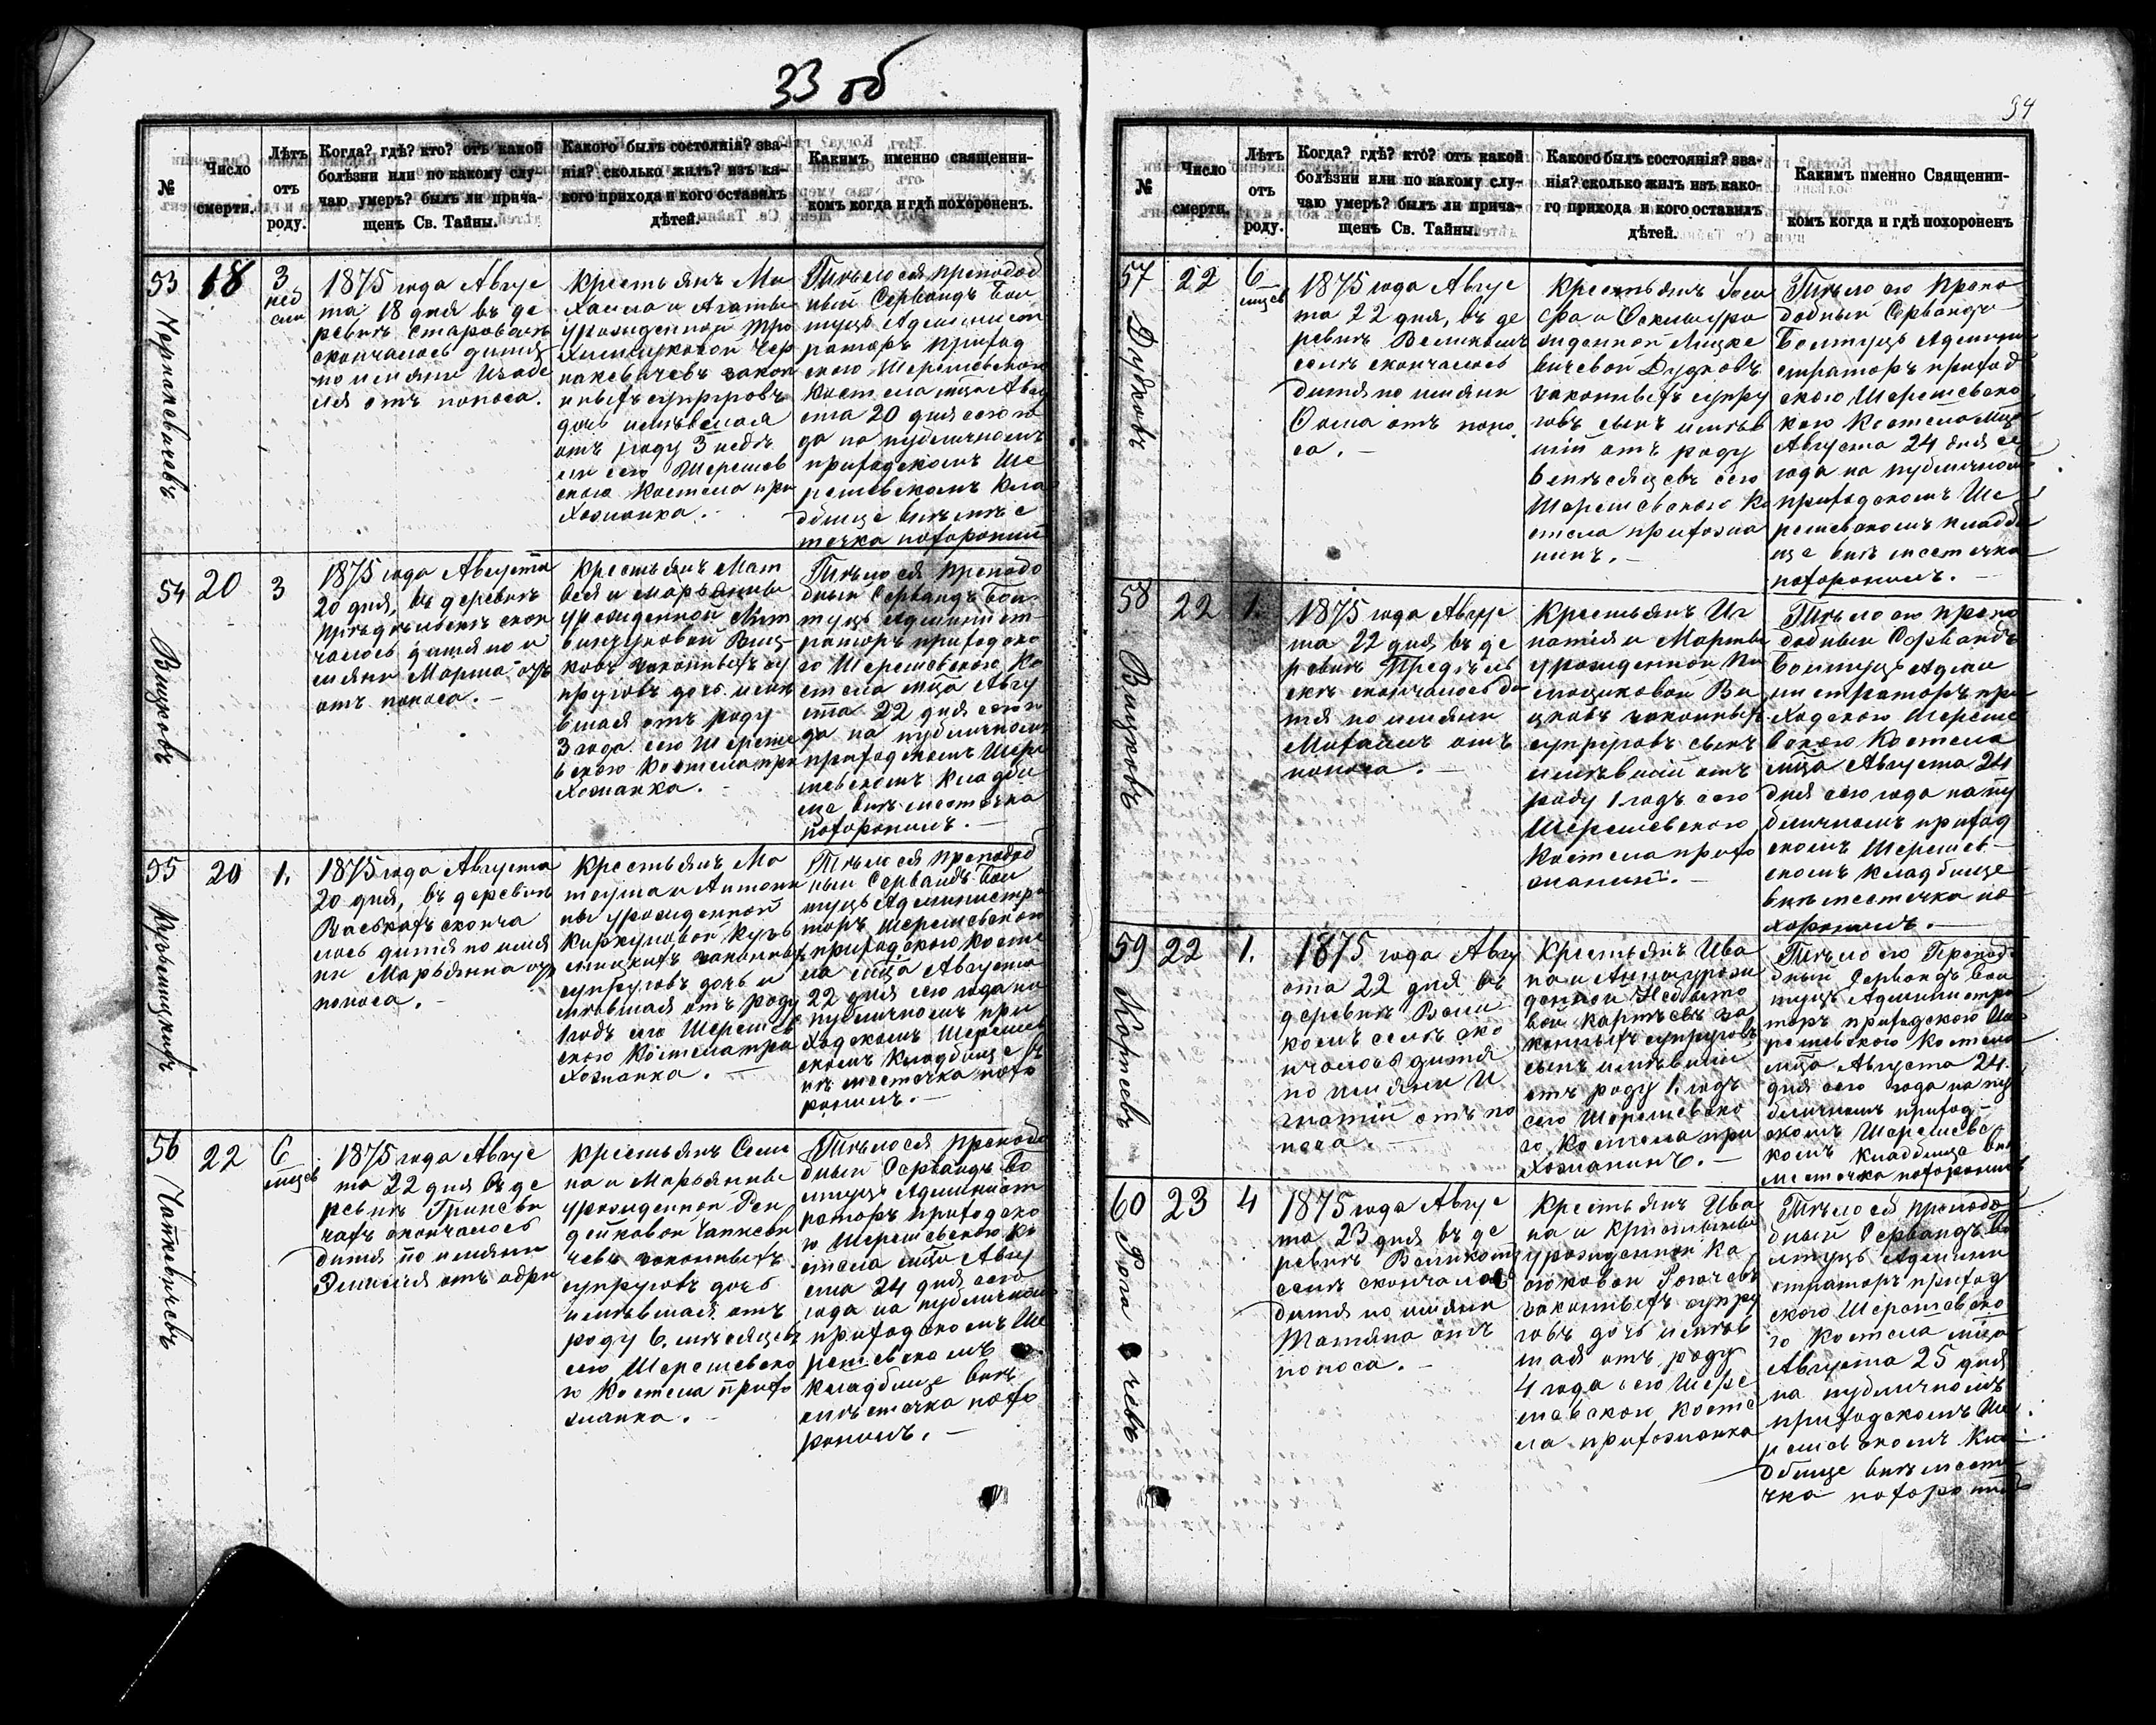 33 об
№
Число
смерти.
Лѣтъ
отъ
роду.
Когда? гдѣ? кто? отъ какой
болѣзни или по какому слу-
чаю умеръ? былъ ли прича-
щенъ Св. Тайны.
Какого былъ состоянія? зва-
нія? сколько жилъ? изъ ка-
кого прихода и кого оставилъ
дѣтей.
Какимъ именно священни-
комъ когда и гдѣ похороненъ.
53
18
3
нед
1875 года Авгус
та 18 дня въ де
ревнѣ
скончалось дитя
по имяни Изабе
ля отъ поноса.
Крестьянъ Ми
хаила и Агаты
урожденной
законныхъ супруговъ
дочь имѣвшая
отъ роду 3 недѣ
ли сего Шерешев
скаго Костела при
хожанка.
Тѣло ея преподоб
ный Сервандъ Бол
туць Админист
раторъ приход
скаго Шерешевскаго
Костела мца Авгу
ста 20 дня сего го
да на публичномъ
приходскомъ Ше
решевскомъ кла
дбище внѣ мѣс
течка похоронилъ
54
Вицковъ
20
3
1875 года Августа
20 дня, въ деревнѣ
скон
чалось дитя по и
мяни Марта
отъ поноса. -
Крестьянъ Мат
вея и Марьянны
урожденной
Виц-
ковъ законныхъ су
пруговъ дочь имѣ
вшая отъ роду
3 года сего Шереше
вскаго Костела при
хожанка.
Тѣло ея преподо
бный Сервандъ Бол
туць Админист-
раторъ приходско
го Шерешевскаго Ко
стела мца Авгу
ста 22 дня сего го
да на публичномъ
приходскомъ Шере
шевскомъ кладби
ще внѣ местечка
похоронилъ. -
55
20
1.
1875 года Августа
20 дня, въ деревнѣ
Васькахъ сконча
лось дитя по имя
ни Марьянна отъ
поноса. -
Крестьянъ Ма
теуша и Антони
ны урожденной
законныхъ
супруговъ дочь и
мѣвшая отъ роду
1 годъ сего Шерешев
скаго Костела при
хожанка. -
Тѣло ея преподоб
ный Сервандъ Бол
туць Администра
торъ Шерешевскаго
приходскаго Косте
ла мца Августа
22 дня сего года на
публичномъ при
ходскомъ Шерешев
скомъ кладбище в
нѣ местечка похо
ронилъ. -
56
Чапкевичевъ
22
6
мцев
1875 года Авгус
та 22 дня въ де
ревнѣ Гриневи
чахъ скончалось
дитя по имяни
Эмилія отъ одры
Крестьянъ Семе
на и Марьянны
урожденной Рен
дейковой Чапкеви
чевъ законныхъ
супруговъ дочь
имѣвшая отъ
роду 6 мѣсяцевъ
сего Шерешевско
го Костела прихо
жанка.
Тѣло ея преподо
бный Сервандъ Бо
лтуць Админист
раторъ приходско
го Шерешевскаго Ко
стела мца Авгу
ста 24 дня сего
года на публичномъ
приходскомъ Ше
решевскомъ
кладбище внѣ
мѣстечка похо
ронилъ. -
№
Число
смерти.
Лѣтъ
отъ
роду.
Когда? гдѣ? кто? отъ какой
болѣзни или по какому слу-
чаю умеръ? былъ ли прича-
щенъ Св. Тайны.
Какого былъ состоянія? зва-
нія? сколько жилъ изъ како-
го прихода и кого оставилъ
дѣтей.
Какимъ именно Священни-
комъ когда и гдѣ похороненъ
57
Дудковъ
22
6
мцев
1875 года Авгус
та 22 дня, въ де
ревнѣ Великомъ
селѣ скончалось
дитя по имяни
Фома отъ поно
са. -
Крестьянъ Іоси
фа и уро
жденной Мицке
вичевой Дудковъ
законныхъ супру
говъ сынъ имѣв
шій отъ роду
6 мѣсяцевъ сего
Шерешевскаго Ко
стела прихожа
нинъ. -
Тѣло его препо
добный Сервандъ
Болтуць Админи
страторъ приход
скаго Шерешевска
го Костела мца
Августа 24 дня се
года на публичномъ
приходскомъ Ше
решевскомъ кладби
ще внѣ местечка
похоронилъ. -
58
Вицковъ
22
1.
1875 года Авгус
та 22 дня въ де
ревнѣ
скончалось ди
тя по имяни
Михаилъ отъ
поноса. -
Крестьянъ Иг
натія и Марты
урожденной
Ви
цковъ законныхъ
супруговъ сынъ
имѣвшій отъ
роду 1 годъ сего
Шерешевскаго
Костела прихо
жанинъ. -
Тѣло его препо
добный Сервандъ
Болтуць Админи
страторъ при
ходскаго Шереше
вскаго Костела
мца Августа 24
дня сего года на пу
бличномъ приход
скомъ Шерешев-
скомъ кладбище
внѣ местечка по
хоронилъ. -
59
Картевъ
22
1.
1875 года Авгу
ста 22 дня въ
деревнѣ Вели
комъ селѣ ско
нчалось дитя
по имяни И
гнатій отъ по
носа. -
Крестьянъ Ива
на и Анны урож
денной
Картевъ за
конныхъ супруговъ
сынъ имѣвшій
отъ роду 1. годъ
сего Шерешевско
го Костела при
хожанинъ. -
Тѣло его Препод
бный Сервандъ Бол
туць Администра
торъ приходскаго Ше
решевскаго Костела
мца Августа 24
дня сего года на пу
бличномъ приход-
скомъ Шерешевс
комъ кладбище внѣ
местечка похоронилъ
60
23
4
1875 года Авгус
та 23 дня въ де
ревнѣ Великомъ
селѣ скончалось
дитя по имяни
Татяна отъ
поноса. -
Крестьянъ Ива
на и Кристины
урожденной
законныхъ супру
говъ дочь имѣв
шая отъ роду
4 года сего Шере
шевскаго Косте
ла прихожанка
Тѣло ея преподо
бный Сервандъ Бо
лтуць Админи
страторъ приход
скаго Шерешевско
го Костела мца
Августа 25 дня
на публичномъ
приходскомъ Ше
решевскомъ кла
дбище внѣ месте
чка похоронилъ